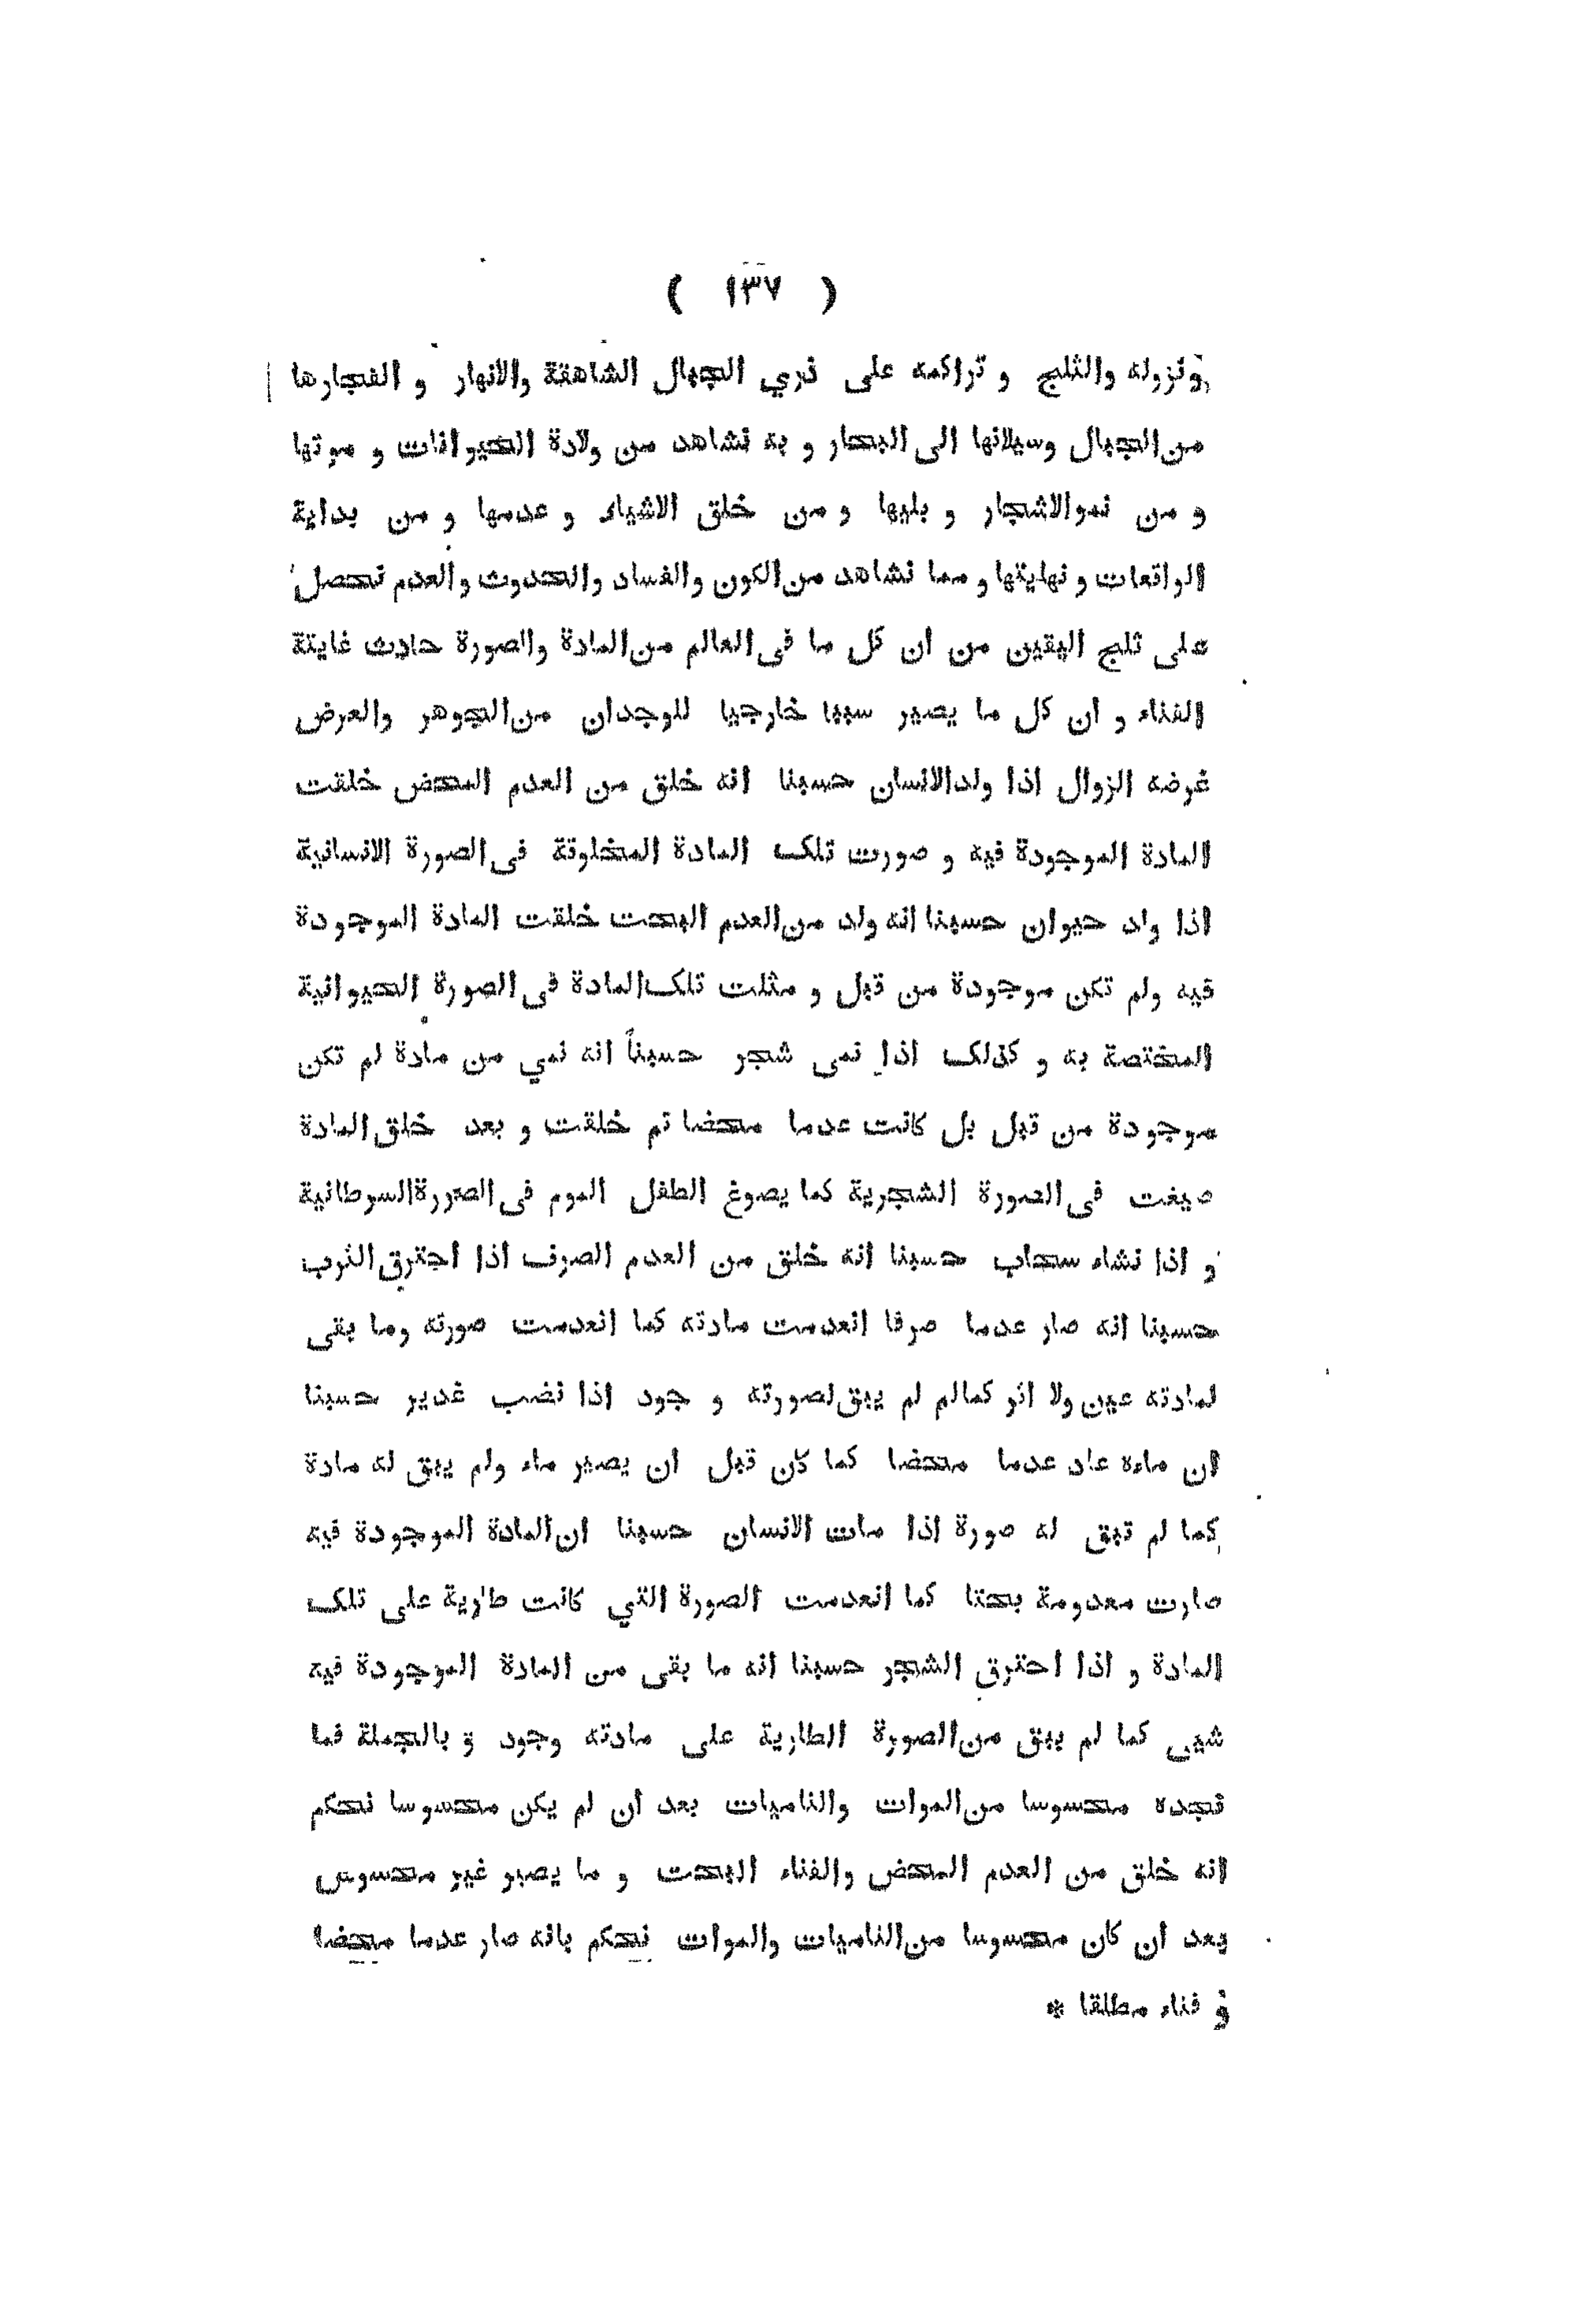 ( ١٣٧ )
ونزوله والثلج و تراكمه على ذري الجبال الشاهقة والانهار و الفجارها
من الجبال وسيلانها الى البحار و به نشاهد من ولادة الحيوانات و موتها
و من نمو الاشجار و بليها و من خلق الاشياء و عدمها و من بداية
الواقعات و نهايتها و مما نشاهد من الكون والفساد والحدوث والعدم نحصل
على ثلج اليقين من ان كل ما فى العالم من المادة والصورة حادث غايتة
الفناء و ان كل ما يصير سببا خارجيا للوجدان من الجوهر والعرض
غرضه الزوال اذا ولد الانسان حسبنا انه خلق من العدم المحض خلقت
المادة الموجودة فيه و صورت تلك المادة المخلوقة فى الصورة الانسانية
اذا ولد حيوان حسبنا انه ولد من العدم البحت خلقت المادة الموجودة
فيه ولم تكن موجودة من قبل و مثلت تلك المادة فى الصورة الحيوانية
المختصة به و كذلك اذا نمى شجر حسبناً انه نمي من مادة لم تكن
موجودة من قبل بل كانت عدما محضا ثم خلقت و بعد خلق المادة
صيغت فى الصورة الشجرية كما يصوغ الطفل الموم فى الصورة السرطانية
و اذا نشاء سحاب حسبنا انه خلق من العدم الصرف اذا احترق الثوب
حسبنا انه صار عدما صرفا انعدمت مادته كما انعدمت صورته وما بقى
لمادته عين ولا اثر كمالم لم يبق لصورته و جود اذا نضب غدير حسبنا
ان ماءه عاد عدما محضا كما كان قبل ان يصير ماء ولم يبق له مادة
كما لم تبق له صورة اذا مات الانسان حسبنا ان المادة الموجودة فيه
صارت معدومة بحتا كما انعدمت الصورة التي كانت طارية على تلك
المادة و اذا احترق الشجر حسبنا انه ما بقى من المادة الموجودة فيه
شيى كما لم يبق من الصورة الطارية على مادته وجود و بالجملة فما
نجده محسوسا من الموات والناميات بعد أن لم يكن محسوسا نحكم
انه خلق من العدم المحض والفناء البحت و ما يصير غير محسوس
بعد أن كان محسوسا من الناميات والموات نحكم بانه صار عدما محضا
و فناء مطلقا *